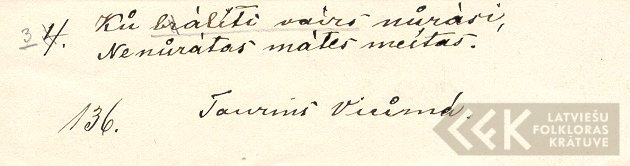 3 4. Ků brālīti vairs nůrāsi,
Nenůrātas mātes meitas.
136. Taurins Viļůmā.
LATVIEŠU
FOLKLORAS
KRĀTUVE